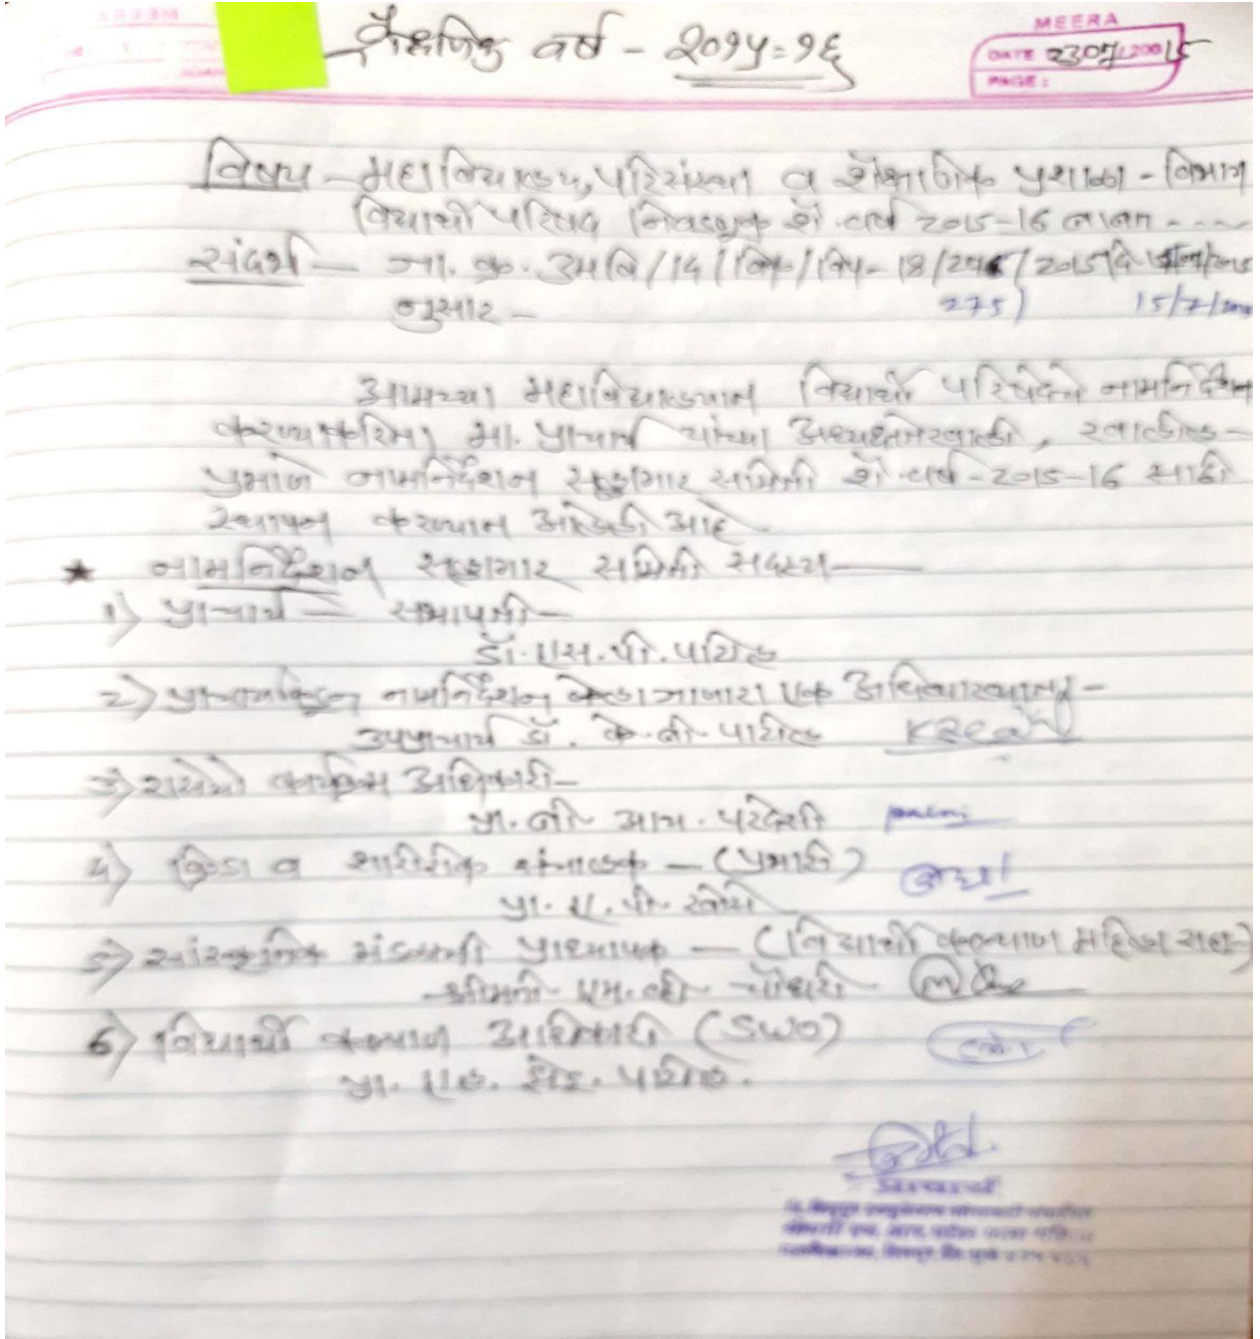 शैक्षणिक वर्ष - २०१५=१६
MEERA
DATE 2307/2015
PAGE:
विषय - महाविद्यालय, परिसंस्था व शैक्षणिक प्रशाळा - विभाग
विद्यार्थी परिषद निवडणुक शै. वर्ष 2015-16 बाबत ----
संदर्भ - जा. क्र. उमवि/14/
नुसार - 275) 15/7/
आमच्या महाविद्यालयात विद्यार्थी परिषदेचे नामनिर्देशन
करण्याकरिता मा. प्राचार्य यांच्या अध्यक्षतेखाली, खालील-
प्रमाणे नामनिर्देशन सल्लागार समिती शै. वर्ष - 2015-16 साठी
स्थापन करण्यात आलेली आहे.
★ नामनिर्देशन सल्लागार समिती सदस्य—
1) प्राचार्य - सभापती -
डॉ. एस. पी. पाटील
2) प्राचार्यांकडुन नामनिर्देशन केला जाणारा एक अधिव्याख्याता -
उपप्राचार्य डॉ. के. बी. पाटील
3) रासेयो कार्यक्रम अधिकारी -
प्रा. बी. आय. परदेशी
4) क्रिडा व शारीरिक संचालक - (प्रभारी)
प्रा. ए. पी.
5) सांस्कृतिक मंडळाची प्राध्यापक - (विद्यार्थी कल्याण महिला सहा.)
श्रीमती एम. व्ही. चौधरी
6) विद्यार्थी कल्याण अधिकारी (SWO)
प्रा. एल. झेड. पाटील.